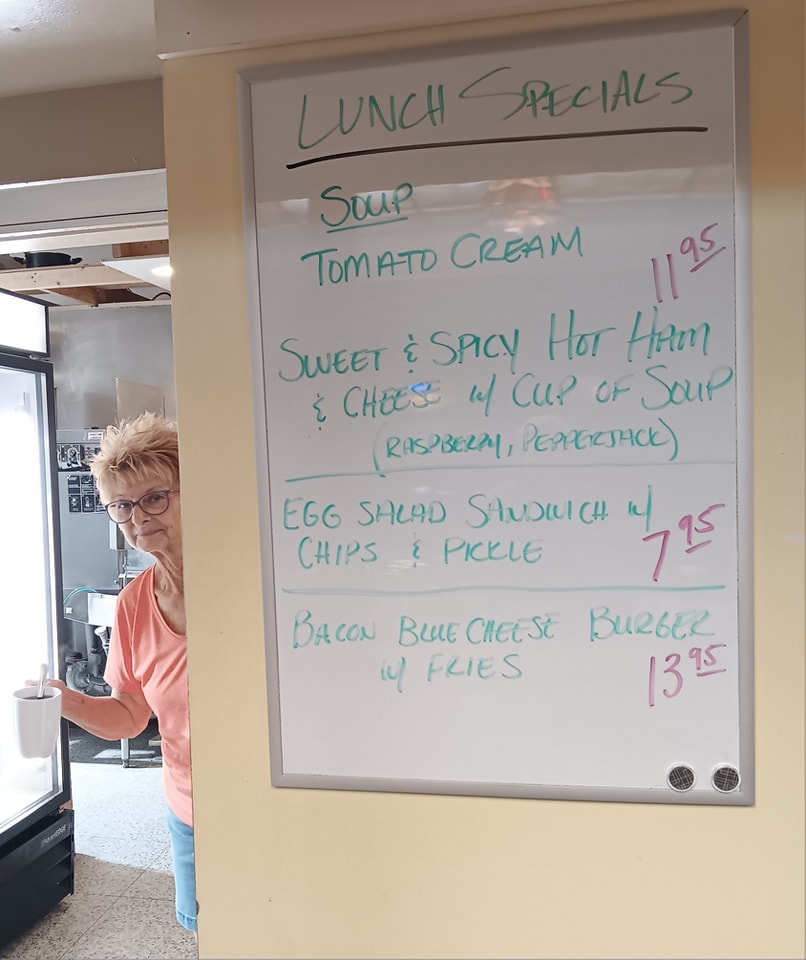 LUNCH SPECIALS
SOUP
TOMATO CREAM
11 95
SWEET & SPICY HOT HAM
& CHEESE w/ CUP OF SOUP
(RASPBERRY, PEPPERJACK)
EGG SALAD SANDWICH w/
CHIPS & PICKLE 7 95
BACON BLUE CHEESE BURGER
w/ FRIES 13 95